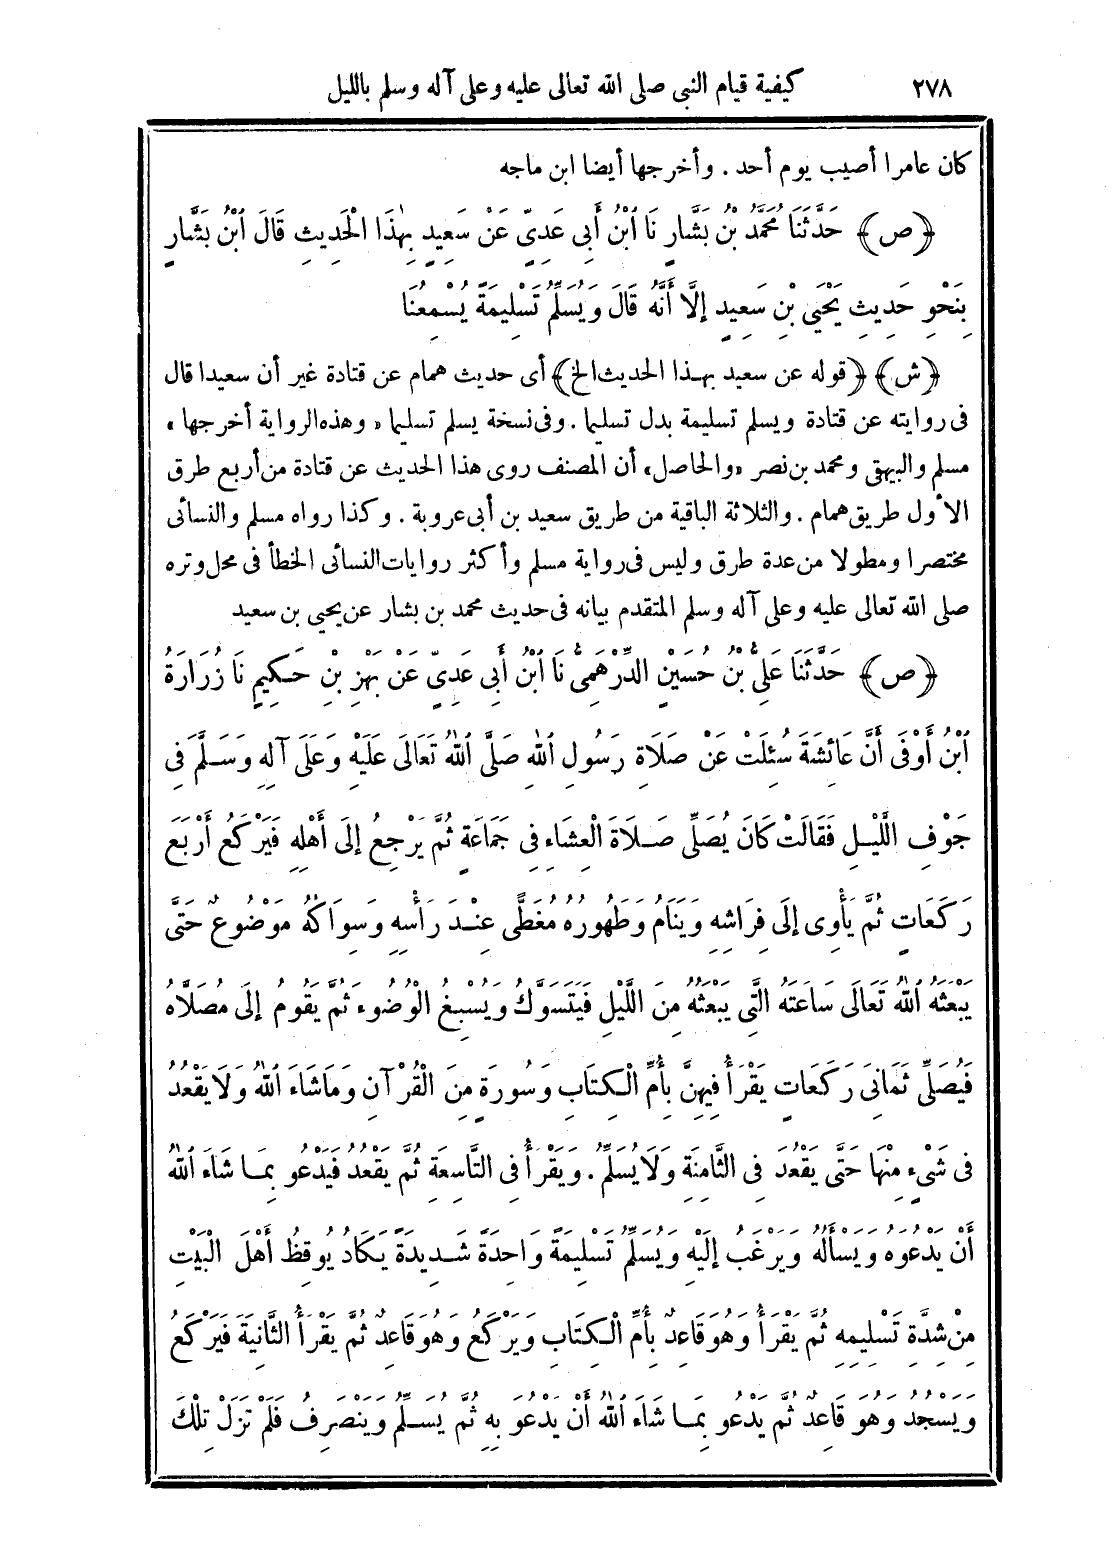 ٢٧٨ كيفية قيام النبى صلى الله تعالى عليه وعلى آله وسلم بالليل
كان عامرا أصيب يوم أحد . وأخرجها أيضا ابن ماجه
﴿ص﴾ حَدَّثَنَا مُحَمَّدُ بْنُ بَشَّارٍ نَا ٱبْنُ أَبِى عَدِىٍّ عَنْ سَعِيدٍ بِهٰذَا الْحَدِيثِ قَالَ ٱبْنُ بَشَّارٍ
بِنَحْوِ حَدِيثِ يَحْيَى بْنِ سَعِيدٍ إِلَّا أَنَّهُ قَالَ وَيُسَلِّمُ تَسْلِيمَةً يُسْمِعُنَا
﴿ش﴾ ﴿قوله عن سعيد بهذا الحديث الخ﴾ أى حديث همام عن قتادة غير أن سعيدا قال
فى روايته عن قتادة ويسلم تسليمة بدل تسليما . وفى نسخة يسلم تسليما «وهذه الرواية أخرجها»
مسلم والبيهقى ومحمد بن نصر «والحاصل» أن المصنف روى هذا الحديث عن قتادة من أربع طرق
الأول طريق همام . والثلاثة الباقية من طريق سعيد بن أبى عروبة . وكذا رواه مسلم والنسائى
مختصرا ومطولا من عدة طرق وليس فى رواية مسلم وأكثر روايات النسائى الخطأ فى محل وتره
صلى الله تعالى عليه وعلى آله وسلم المتقدم بيانه فى حديث محمد بن بشار عن يحيى بن سعيد
﴿ص﴾ حَدَّثَنَا عَلِىُّ بْنُ حُسَيْنٍ الدِّرْهَمِىُّ نَا ابْنُ أَبِى عَدِىٍّ عَنْ بَهْزِ بْنِ حَكِيمٍ نَا زُرَارَةُ
ٱبْنُ أَوْفَى أَنَّ عَائِشَةَ سُئِلَتْ عَنْ صَلَاةِ رَسُولِ ٱللهِ صَلَّى ٱللهُ تَعَالَى عَلَيْهِ وَعَلَى آلِهِ وَسَلَّمَ فِى
جَوْفِ اللَّيْلِ فَقَالَتْ كَانَ يُصَلِّى صَلَاةَ الْعِشَاءِ فِى جَمَاعَةٍ ثُمَّ يَرْجِعُ إِلَى أَهْلِهِ فَيَرْكَعُ أَرْبَعَ
رَكَعَاتٍ ثُمَّ يَأْوِى إِلَى فِرَاشِهِ وَيَنَامُ وَطَهُورُهُ مُغَطًّى عِنْدَ رَأْسِهِ وَسِوَاكُهُ مَوْضُوعٌ حَتَّى
يَبْعَثَهُ ٱللهُ تَعَالَى سَاعَتَهُ الَّتِى يَبْعَثُهُ مِنَ اللَّيْلِ فَيَتَسَوَّكُ وَيُسْبِغُ الْوُضُوءَ ثُمَّ يَقُومُ إِلَى مُصَلَّاهُ
فَيُصَلِّى ثَمَانِىَ رَكَعَاتٍ يَقْرَأُ فِيهِنَّ بِأُمِّ الْكِتَابِ وَسُورَةٍ مِنَ الْقُرْآنِ وَمَا شَاءَ ٱللهُ وَلَا يَقْعُدُ
فِى شَىْءٍ مِنْهَا حَتَّى يَقْعُدَ فِى الثَّامِنَةِ وَلَا يُسَلِّمُ . وَيَقْرَأُ فِى التَّاسِعَةِ ثُمَّ يَقْعُدُ فَيَدْعُو بِمَا شَاءَ ٱللهُ
أَنْ يَدْعُوَهُ وَيَسْأَلُهُ وَيَرْغَبُ إِلَيْهِ وَيُسَلِّمُ تَسْلِيمَةً وَاحِدَةً شَدِيدَةً يَكَادُ يُوقِظُ أَهْلَ الْبَيْتِ
مِنْ شِدَّةِ تَسْلِيمِهِ ثُمَّ يَقْرَأُ وَهُوَ قَاعِدٌ بِأُمِّ الْكِتَابِ وَيَرْكَعُ وَهُوَ قَاعِدٌ ثُمَّ يَقْرَأُ الثَّانِيَةَ فَيَرْكَعُ
وَيَسْجُدُ وَهُوَ قَاعِدٌ ثُمَّ يَدْعُو بِمَا شَاءَ ٱللهُ أَنْ يَدْعُوَ بِهِ ثُمَّ يُسَلِّمُ وَيَنْصَرِفُ فَلَمْ تَزَلْ تِلْكَ